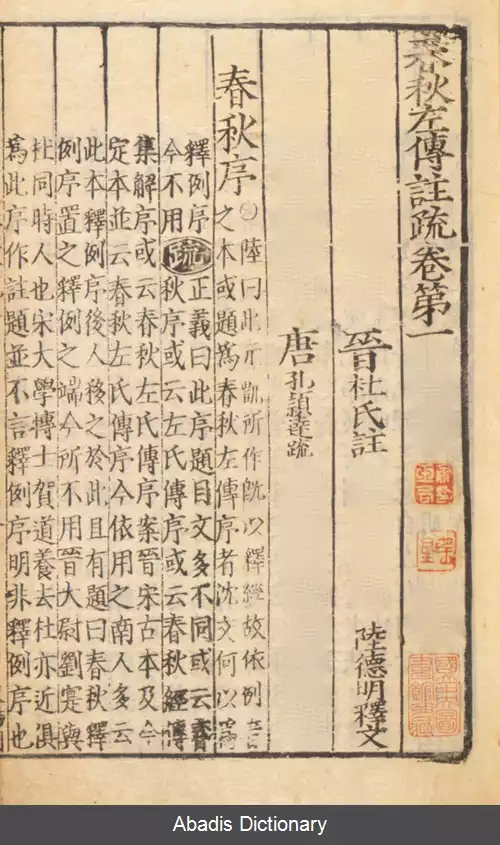 春秋左傳註疏卷第一
晉杜氏註
陸德明釋文
唐孔穎達疏
春秋序
〇陸曰此元凱所作既以釋經故依例音
之本或題為春秋左傳序者沈文何以為
釋例序
今不用
疏
正義曰此序題目文多不同或云春
秋序或云左氏傳序或云春秋經傳
集解序或云春秋左氏傳序案晉宋古本及今
定本並云春秋左氏傳序今依用之南人多云
此本釋例序後人移之於此且有題曰春秋釋
例序置之釋例之端今所不用晉大尉劉寔與
杜同時人也宋大學博士賀道養去杜亦近俱
為此序作註題並不言釋例序明非釋例序也
Abadis Dictionary